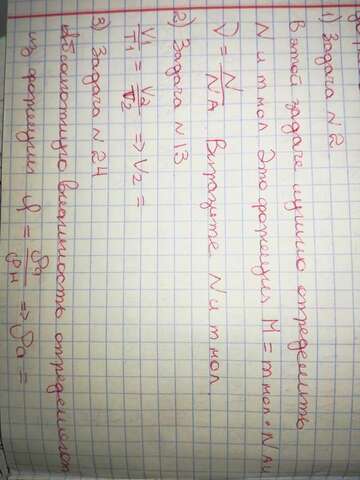 1) Задача N2
В этой задаче нужно определить
N и m мол. Это формулы M = m мол · NA и
ν = N/NA Выразите N и m мол.
2) Задача N13
V1/T1 = V2/T2 => V2 =
3) Задача N24
Абсолютную влажность определяют
из формулы φ = ρa/ρн => ρa =